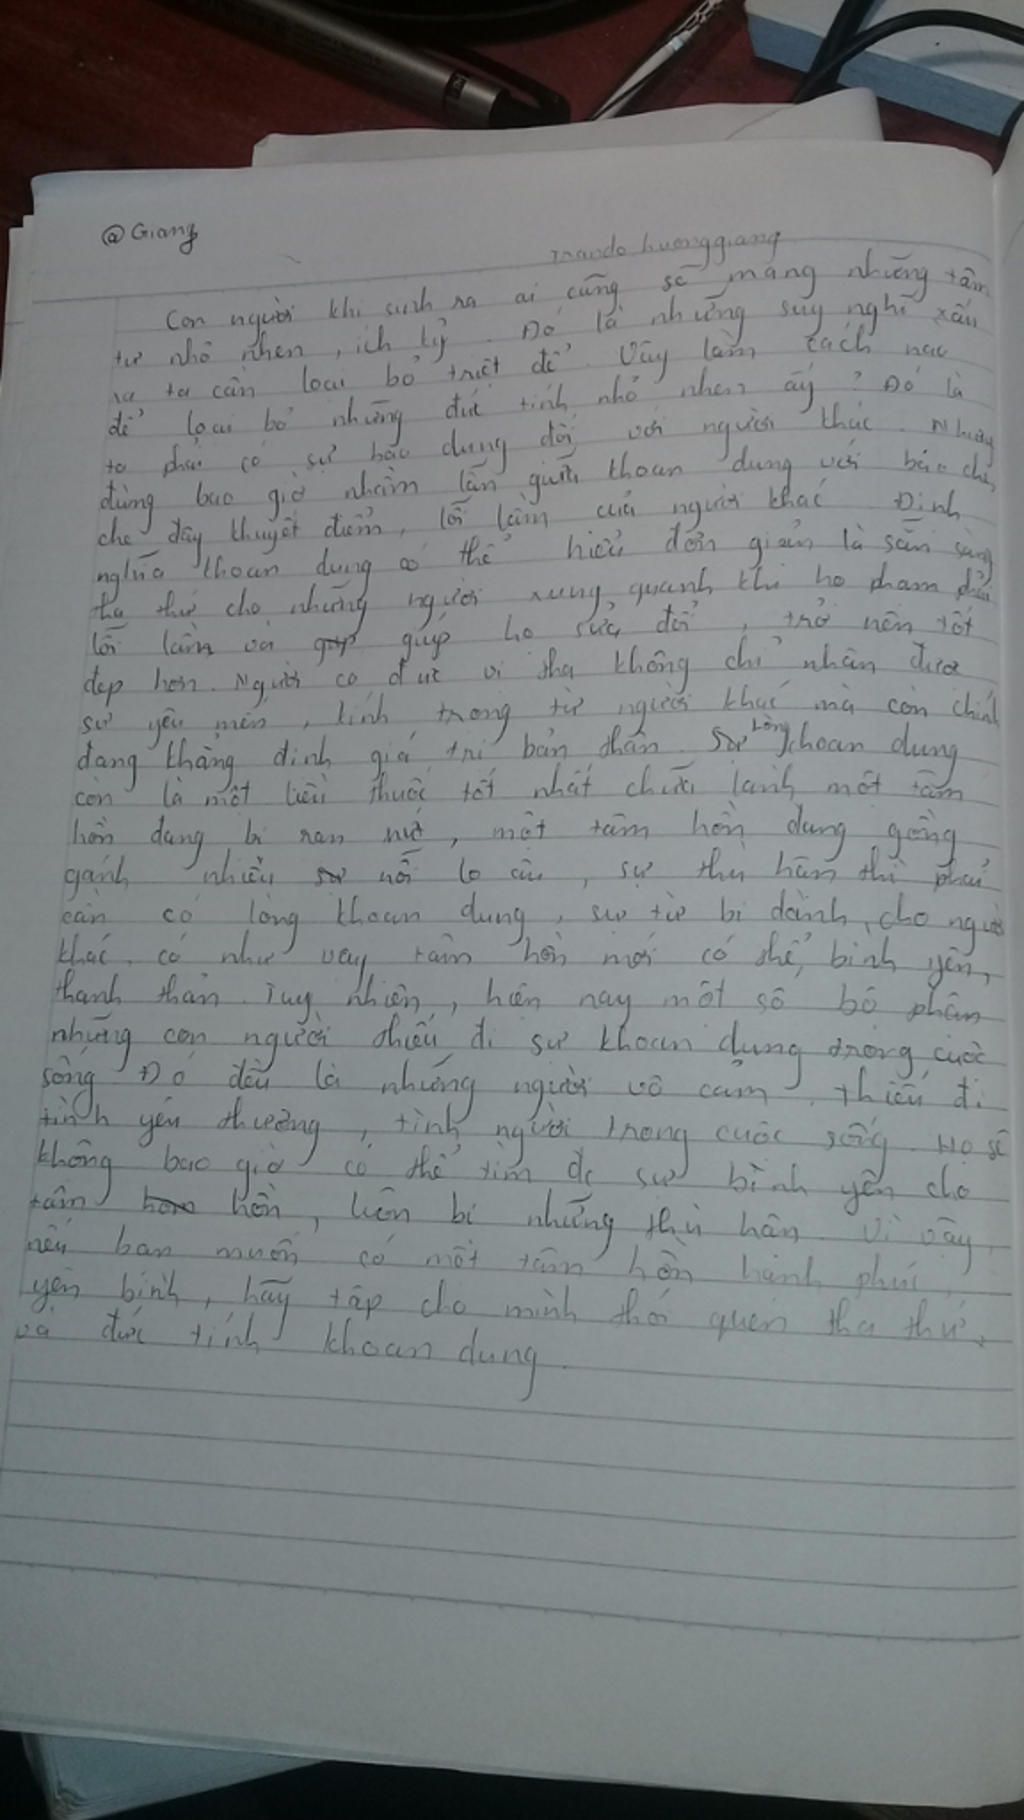 @ Giang
trando huonggiang
Con người khi sinh ra ai cũng sẽ mang những tâm
tư nhỏ nhen, ích kỷ. Đó là những suy nghĩ xấu
ta cần loại bỏ triệt để. Vậy làm cách nào
để loại bỏ những đức tính nhỏ nhen ấy? Đó là
ta phải có sự bao dung đối với người khác. Nhưng
đừng bao giờ nhầm lẫn giữa khoan dung với bao che,
che đậy khuyết điểm, lỗi lầm của người khác. Định
nghĩa khoan dung có thể hiểu đơn giản là sẵn sàng
tha thứ cho những người xung quanh khi họ phạm phải
lỗi lầm và giúp họ sửa đổi, trở nên tốt
đẹp hơn. Người có đức vị tha không chỉ nhận được
sự yêu mến, kính trọng từ người khác mà còn chính
đang khẳng định giá trị bản thân. Lòng khoan dung
còn là một liều thuốc tốt nhất chữa lành một tâm
hồn đang bị rạn nứt, một tâm hồn đang gồng
gánh nhiều nỗi lo âu, sự thù hận thì phải
cần có lòng khoan dung, sự từ bi dành cho người
khác, có như vậy tâm hồn mới có thể bình yên,
thanh thản. Tuy nhiên, hiện nay một số bộ phận
những con người thiếu đi sự khoan dung trong cuộc
sống. Đó đều là những người vô cảm, thiếu đi
tình yêu thương, tình người trong cuộc sống. Họ sẽ
không bao giờ có thể tìm đc sự bình yên cho
tâm hồn, luôn bị những thù hận. Vì vậy,
nếu bạn muốn có một tâm hồn hạnh phúc,
yên bình, hãy tập cho mình thói quen tha thứ
và đức tính khoan dung.